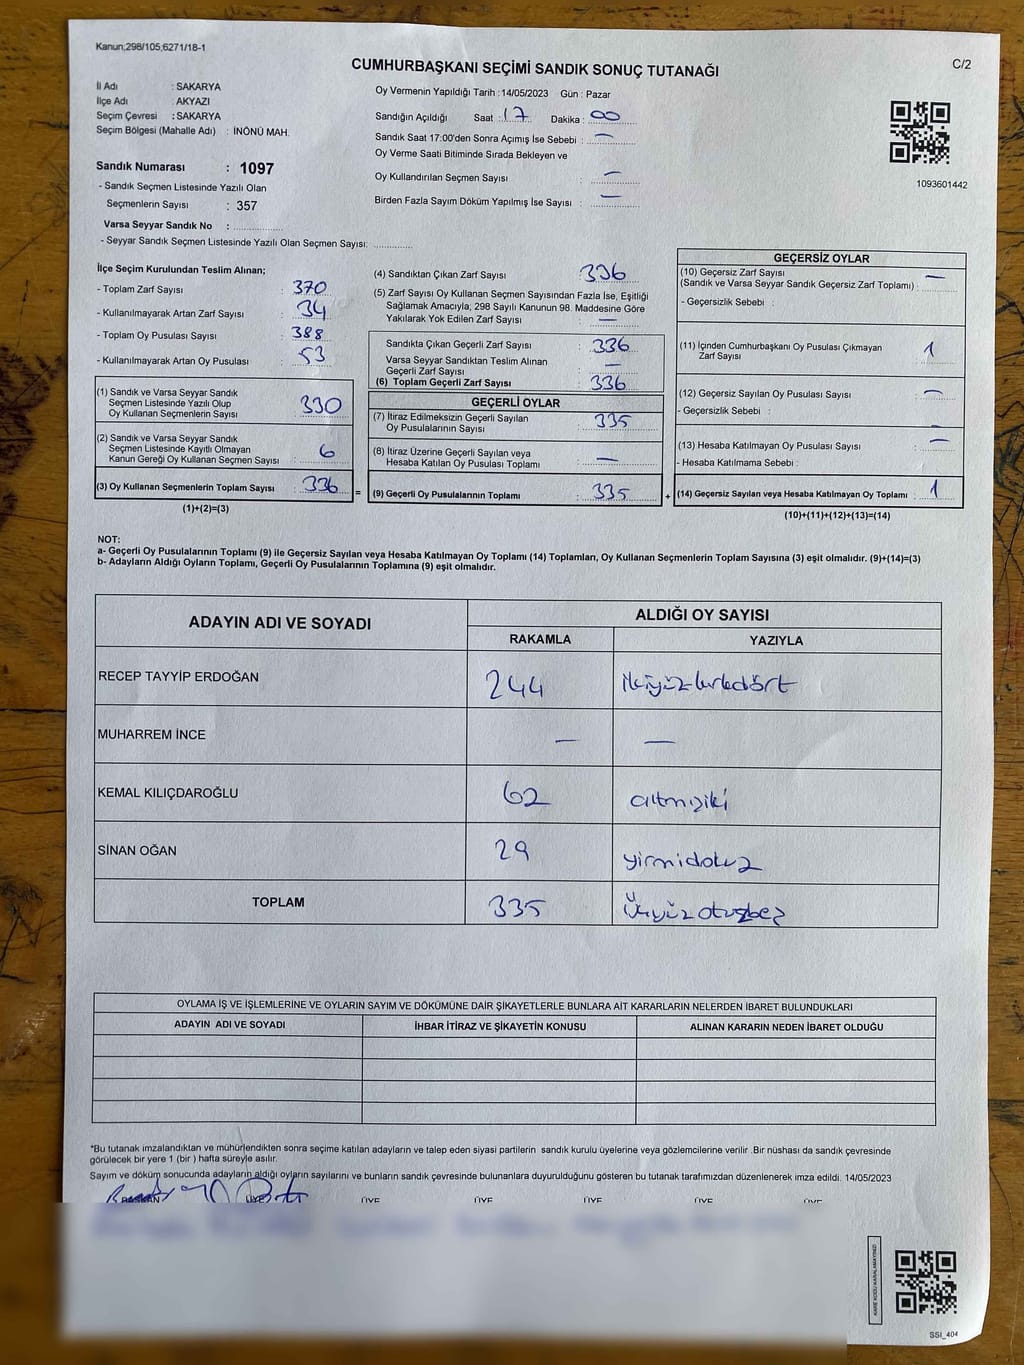 Kanun;298/105;6271/18-1
C/2
CUMHURBAŞKANI SEÇİMİ SANDIK SONUÇ TUTANAĞI
İl Adı : SAKARYA
İlçe Adı : AKYAZI
Seçim Çevresi : SAKARYA
Seçim Bölgesi (Mahalle Adı) : İNÖNÜ MAH.
Sandık Numarası : 1097
- Sandık Seçmen Listesinde Yazılı Olan
Seçmenlerin Sayısı : 357
Varsa Seyyar Sandık No :
- Seyyar Sandık Seçmen Listesinde Yazılı Olan Seçmen Sayısı:
Oy Vermenin Yapıldığı Tarih : 14/05/2023 Gün : Pazar
Sandığın Açıldığı Saat : 17 Dakika : 00
Sandık Saat 17:00'den Sonra Açımış İse Sebebi : —
Oy Verme Saati Bitiminde Sırada Bekleyen ve
Oy Kullandırılan Seçmen Sayısı : —
Birden Fazla Sayım Döküm Yapılmış İse Sayısı : —
1093601442
İlçe Seçim Kurulundan Teslim Alınan;
- Toplam Zarf Sayısı : 370
- Kullanılmayarak Artan Zarf Sayısı : 34
- Toplam Oy Pusulası Sayısı : 388
- Kullanılmayarak Artan Oy Pusulası : 53
(1) Sandık ve Varsa Seyyar Sandık
Seçmen Listesinde Yazılı Olup
Oy Kullanan Seçmenlerin Sayısı : 330
(2) Sandık ve Varsa Seyyar Sandık
Seçmen Listesinde Kayıtlı Olmayan
Kanun Gereği Oy Kullanan Seçmen Sayısı : 6
(3) Oy Kullanan Seçmenlerin Toplam Sayısı : 336
(1)+(2)=(3)
(4) Sandıktan Çıkan Zarf Sayısı : 336
(5) Zarf Sayısı Oy Kullanan Seçmen Sayısından Fazla İse, Eşitliği
Sağlamak Amacıyla, 298 Sayılı Kanunun 98. Maddesine Göre
Yakılarak Yok Edilen Zarf Sayısı : —
Sandıkta Çıkan Geçerli Zarf Sayısı : 336
Varsa Seyyar Sandıktan Teslim Alınan
Geçerli Zarf Sayısı : —
(6) Toplam Geçerli Zarf Sayısı : 336
GEÇERLİ OYLAR
(7) İtiraz Edilmeksizin Geçerli Sayılan
Oy Pusulalarının Sayısı : 335
(8) İtiraz Üzerine Geçerli Sayılan veya
Hesaba Katılan Oy Pusulası Toplamı : —
= (9) Geçerli Oy Pusulalarının Toplamı : 335
GEÇERSİZ OYLAR
(10) Geçersiz Zarf Sayısı
(Sandık ve Varsa Seyyar Sandık Geçersiz Zarf Toplamı) : —
- Geçersizlik Sebebi :
(11) İçinden Cumhurbaşkanı Oy Pusulası Çıkmayan
Zarf Sayısı : 1
(12) Geçersiz Sayılan Oy Pusulası Sayısı : —
- Geçersizlik Sebebi :
(13) Hesaba Katılmayan Oy Pusulası Sayısı : —
- Hesaba Katılmama Sebebi :
+ (14) Geçersiz Sayılan veya Hesaba Katılmayan Oy Toplamı : 1
(10)+(11)+(12)+(13)=(14)
NOT:
a- Geçerli Oy Pusulalarının Toplamı (9) ile Geçersiz Sayılan veya Hesaba Katılmayan Oy Toplamı (14) Toplamları, Oy Kullanan Seçmenlerin Toplam Sayısına (3) eşit olmalıdır. (9)+(14)=(3)
b- Adayların Aldığı Oyların Toplamı, Geçerli Oy Pusulalarının Toplamına (9) eşit olmalıdır.
ADAYIN ADI VE SOYADI ALDIĞI OY SAYISI
RAKAMLA YAZIYLA
RECEP TAYYİP ERDOĞAN 244 ikiyüzkırkdört
MUHARREM İNCE — —
KEMAL KILIÇDAROĞLU 62 altmışiki
SİNAN OĞAN 29 yirmidokuz
TOPLAM 335 Üçyüzotuzbeş
OYLAMA İŞ VE İŞLEMLERİNE VE OYLARIN SAYIM VE DÖKÜMÜNE DAİR ŞİKAYETLERLE BUNLARA AİT KARARLARIN NELERDEN İBARET BULUNDUKLARI
ADAYIN ADI VE SOYADI İHBAR İTİRAZ VE ŞİKAYETİN KONUSU ALINAN KARARIN NEDEN İBARET OLDUĞU
*Bu tutanak imzalandıktan ve mühürlendikten sonra seçime katılan adayların ve talep eden siyasi partilerin sandık kurulu üyelerine veya gözlemcilerine verilir. Bir nüshası da sandık çevresinde
görülecek bir yere 1 (bir ) hafta süreyle asılır.
Sayım ve döküm sonucunda adayların aldığı oyların sayılarını ve bunların sandık çevresinde bulunanlara duyurulduğunu gösteren bu tutanak tarafımızdan düzenlenerek imza edildi. 14/05/2023
BAŞKAN ÜYE ÜYE ÜYE ÜYE ÜYE ÜYE
KARE KODU KARALAMAYINIZ!
SSI_404